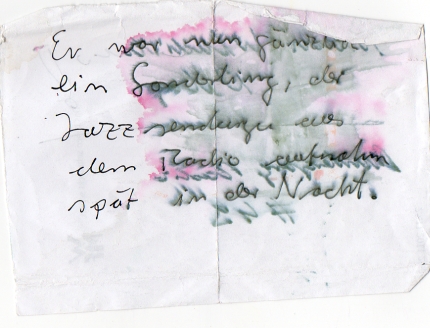 Er war
ein Sonderling, der
Jazzsendungen aus
dem Radio aufnahm
spät in der Nacht.